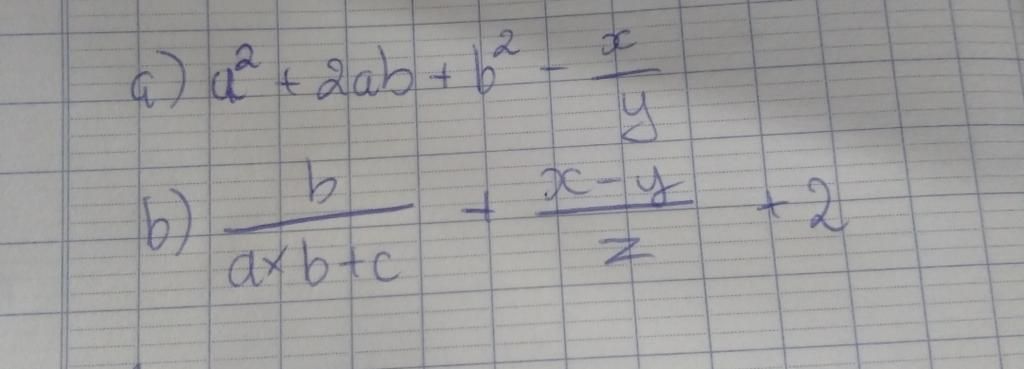 a) a² + 2ab + b² - x/y
b) b/(a×b+c) + (x-y)/z + 2